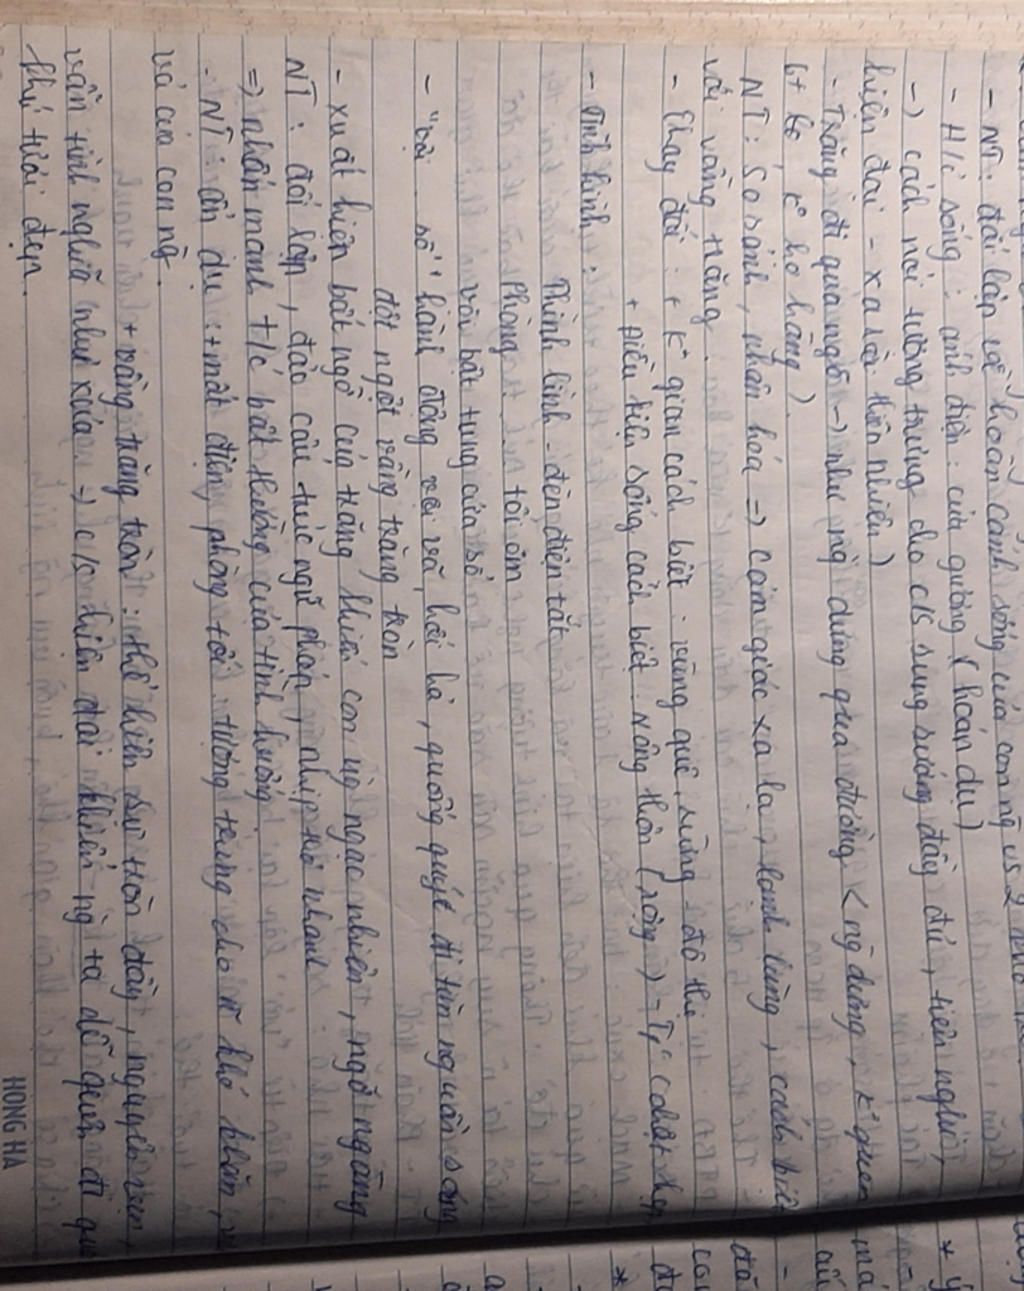 - NT: đối lập về hoàn cảnh sống của con ng vs 2
- H/c sống: ánh điện: cửa gương (hoán dụ)
-> cách nói tượng trưng cho c/s sung sướng đầy đủ, tiện nghi,
hiện đại - xa rời thiên nhiên)
- Trăng đi qua ngõ -> như ng dưng qua đường < ng dưng, k° quen
k° hò hẹn).
NT: So sánh, nhân hóa => cảm giác xa lạ, lạnh lùng, cách biệt
với vầng trăng.
- Thay đổi: + K° gian cách biệt: vùng quê, rừng - đô thị
+ Điều kiện sống cách biệt: Nông thôn (rộng) - TP chật hẹp
- Tình huống:
Thình lình - đèn điện tắt
Phòng tối om
vội bật tung cửa sổ
- "vội ... sổ" hành động vội vã, hối hả, quuống quýt đi tìm nguồn sáng
đột ngột vầng trăng tròn
- xuất hiện bất ngờ của trăng khiến con ng ngạc nhiên, ngỡ ngàng
NT: đối lập, đảo cấu trúc ngữ pháp, nhịp thơ nhanh
=> nhấn mạnh t/c bất thường của tình huống
- NT: ẩn dụ: + mất điện, phòng tối: tượng trưng cho khó khăn,
vả của con ng.
+ vầng trăng tròn: thể hiện sự tròn đầy, nguyên vẹn,
vẫn tình nghĩa như xưa -> c/s hiện đại khiến ng ta dễ quên đi
khứ tươi đẹp.
HONG HA